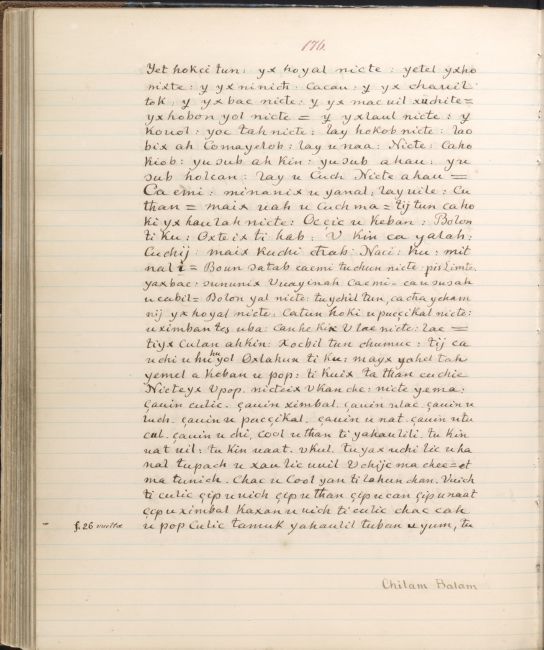 176.
Yet hokci tun: yx hoyal nicte: yetel yxho
nixte: y yx ninich Cacau: y yx chauil
tok, y yx bac nicte: y yx mac uil xuchite=
yx hobon yol nicte = y yx laul nicte: y
Kouol: yoc tah nicte: lay hokob nicte: lao
bix ah Comayelob: lay u naa: Nicte: Caho
Kiob: yu sub ah Kin: yu sub ahau: yu
sub holcan: lay u Cuch Nicte ahau =
Ca emi: minanix u yanal: lay uile: Cu
than = maix uah u Cuch ma = tij tun ca ho
ki yx hau lah nicte: Occic u Keban: Bolon
ti Ku: Oxte ix ti hab: V kin ca yalah:
Cuchij: maix kuchi Naci: Ku: mit
nal i = Boun satab caemi tu chun nicte:
yax bac: sununix Vuayinah Caemi = cau su sah
u cabil = Bolon yal nicte: tuychil tun, cacha ycham
nij yx hoyal nicte: Catun hoki u pucçikal nicte:
u ximban tes uba: Canhe kix V lae nicte: lae =
tiyx Culan ahkin: xocbil tun chumuc: tij ca
uchi u huhuyol Oxlahun ti Ku: mayx yohel tah
yemel a Keban u pop: ti kuix ta than cuchie
Nicteyx V pop. nicteix u Kan che: nicte yema:
çauin culic. çauin ximbal. çauin ulac. çauin u
luch. çauin u pucçikal. çauin u nat. çauin utu
cul. çauin u chi, cool u than ti yahaulili. tu kin
uat uil: tu kin uaat. ukul. tu yax uchi lic u ha
nal tupach u xau lic uuil V chije ma chee = et
ma tunich. Chac u Cool yan ti lahun chan. Vuich
ti culic çip u uich çip u than çip u can çip u naat
çip u ximbal Kaxan u uich ti culic chac cah
f. 26 vuelta
u pop Culic tamuk yahaulil tuban u yum, tu
Chilam Balam